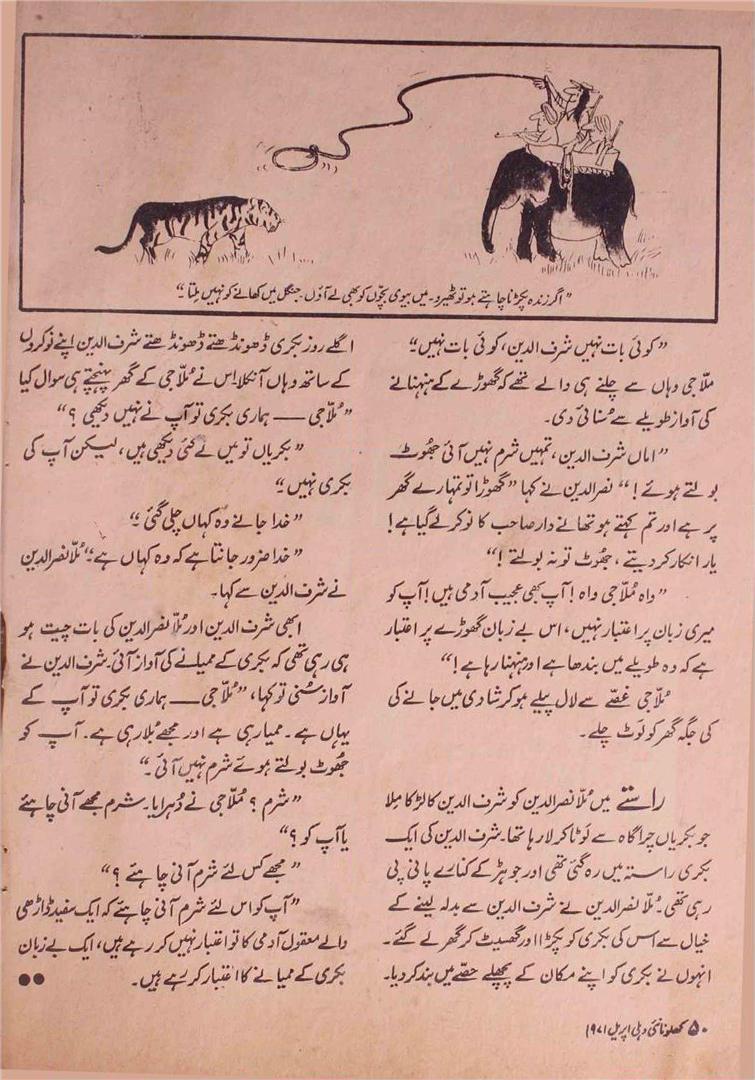 "اگر زندہ پکڑنا چاہتے ہو تو ٹھیرو۔ میں بیوی بچّوں کو بھی لے آؤں۔ جنگل میں کھانے کو نہیں ملتا۔"
"کوئی بات نہیں شرف الدین، کوئی بات نہیں۔"
ملّا جی وہاں سے چلنے ہی والے تھے کہ گھوڑے کے ہنہنانے
کی آواز طویلے سے سُنائی دی۔
"اماں شرف الدین، تمہیں شرم نہیں آئی جھُوٹ
بولتے ہوئے!" نصر الدین نے کہا "گھوڑا تو تمہارے گھر
پر ہے اور تم کہتے ہو تھانے دار صاحب کا نوکر لے گیا ہے!
یار انکار کر دیتے، جھُوٹ تو نہ بولتے!"
"واہ مُلّا جی واہ! آپ بھی عجیب آدمی ہیں! آپ کو
میری زبان پر اعتبار نہیں، اس بے زبان گھوڑے پر اعتبار
ہے کہ وہ طویلے میں بندھا ہے اور ہنہنا رہا ہے!"
مُلّا جی غصّے سے لال پیلے ہو کر شادی میں جانے کی
کی جگہ گھر کو لَوٹ چلے۔
راستے میں مُلّا نصر الدین کو شرف الدین کا لڑکا مِلا
جو بکریاں چراگاہ سے لَوٹا کر لا رہا تھا۔ شرف الدین کی ایک
بکری راستہ میں رہ گئی تھی اور جوہڑ کے کنارے پانی پی
رہی تھی۔ مُلّا نصر الدین نے شرف الدین سے بدلہ لینے کے
خیال سے اس کی بکری کو پکڑا اور گھسیٹ کر گھر لے گئے۔
انہوں نے بکری کو اپنے مکان کے پچھلے حصّے میں بند کر دیا۔
اگلے روز بکری ڈھونڈھتے ڈھونڈھتے شرف الدین اپنے نوکروں
کے ساتھ وہاں آنکلا۔ اس نے مُلّا جی کے گھر پہنچتے ہی سوال کیا
"مُلّا جی —— ہماری بکری تو آپ نے نہیں دیکھی؟"
"بکریاں تو میں نے کئی دیکھی ہیں، لیکن آپ کی
بکری نہیں۔"
"خدا جانے وہ کہاں چلی گئی۔"
"خدا ضرور جانتا ہے کہ وہ کہاں ہے۔" مُلّا نصر الدین
نے شرف الدین سے کہا۔
ابھی شرف الدین اور مُلّا نصر الدین کی بات چیت ہو
ہی رہی تھی کہ بکری کے ممیانے کی آواز آئی۔ شرف الدین نے
آواز سُنی تو کہا، "مُلّا جی —— ہماری بکری تو آپ کے
یہاں ہے۔ ممیا رہی ہے اور مجھے بُلا رہی ہے۔ آپ کو
جھُوٹ بولتے ہوئے شرم نہیں آئی۔"
"شرم؟ مُلّا جی نے دُہرایا۔ شرم مجھے آنی چاہئے
یا آپ کو؟"
"مجھے کس لئے شرم آنی چاہئے؟"
"آپ کو اس لئے شرم آنی چاہئے کہ ایک سفید ڈاڑھی
والے معقول آدمی کا تو اعتبار نہیں کر رہے ہیں، ایک بے زبان
بکری کے ممیانے کا اعتبار کر رہے ہیں۔
۵۰ کھلونا نئی دہلی اپریل ۱۹۷۱ء